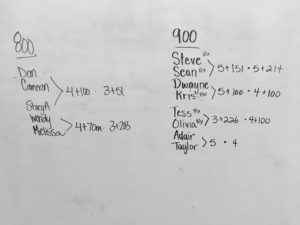 800
Don
Cameron
4+100 · 3+51
Stacy A
Wendy
Melissa
4+70m · 3+285
900
Steve Rx
Sean Rx
5+131 · 5+214
Dwayne
Kris
5+100 · 4+100
Tess Rx
Olivia Rx
3+226 · 4+100
Adair
Taylor
5 · 4